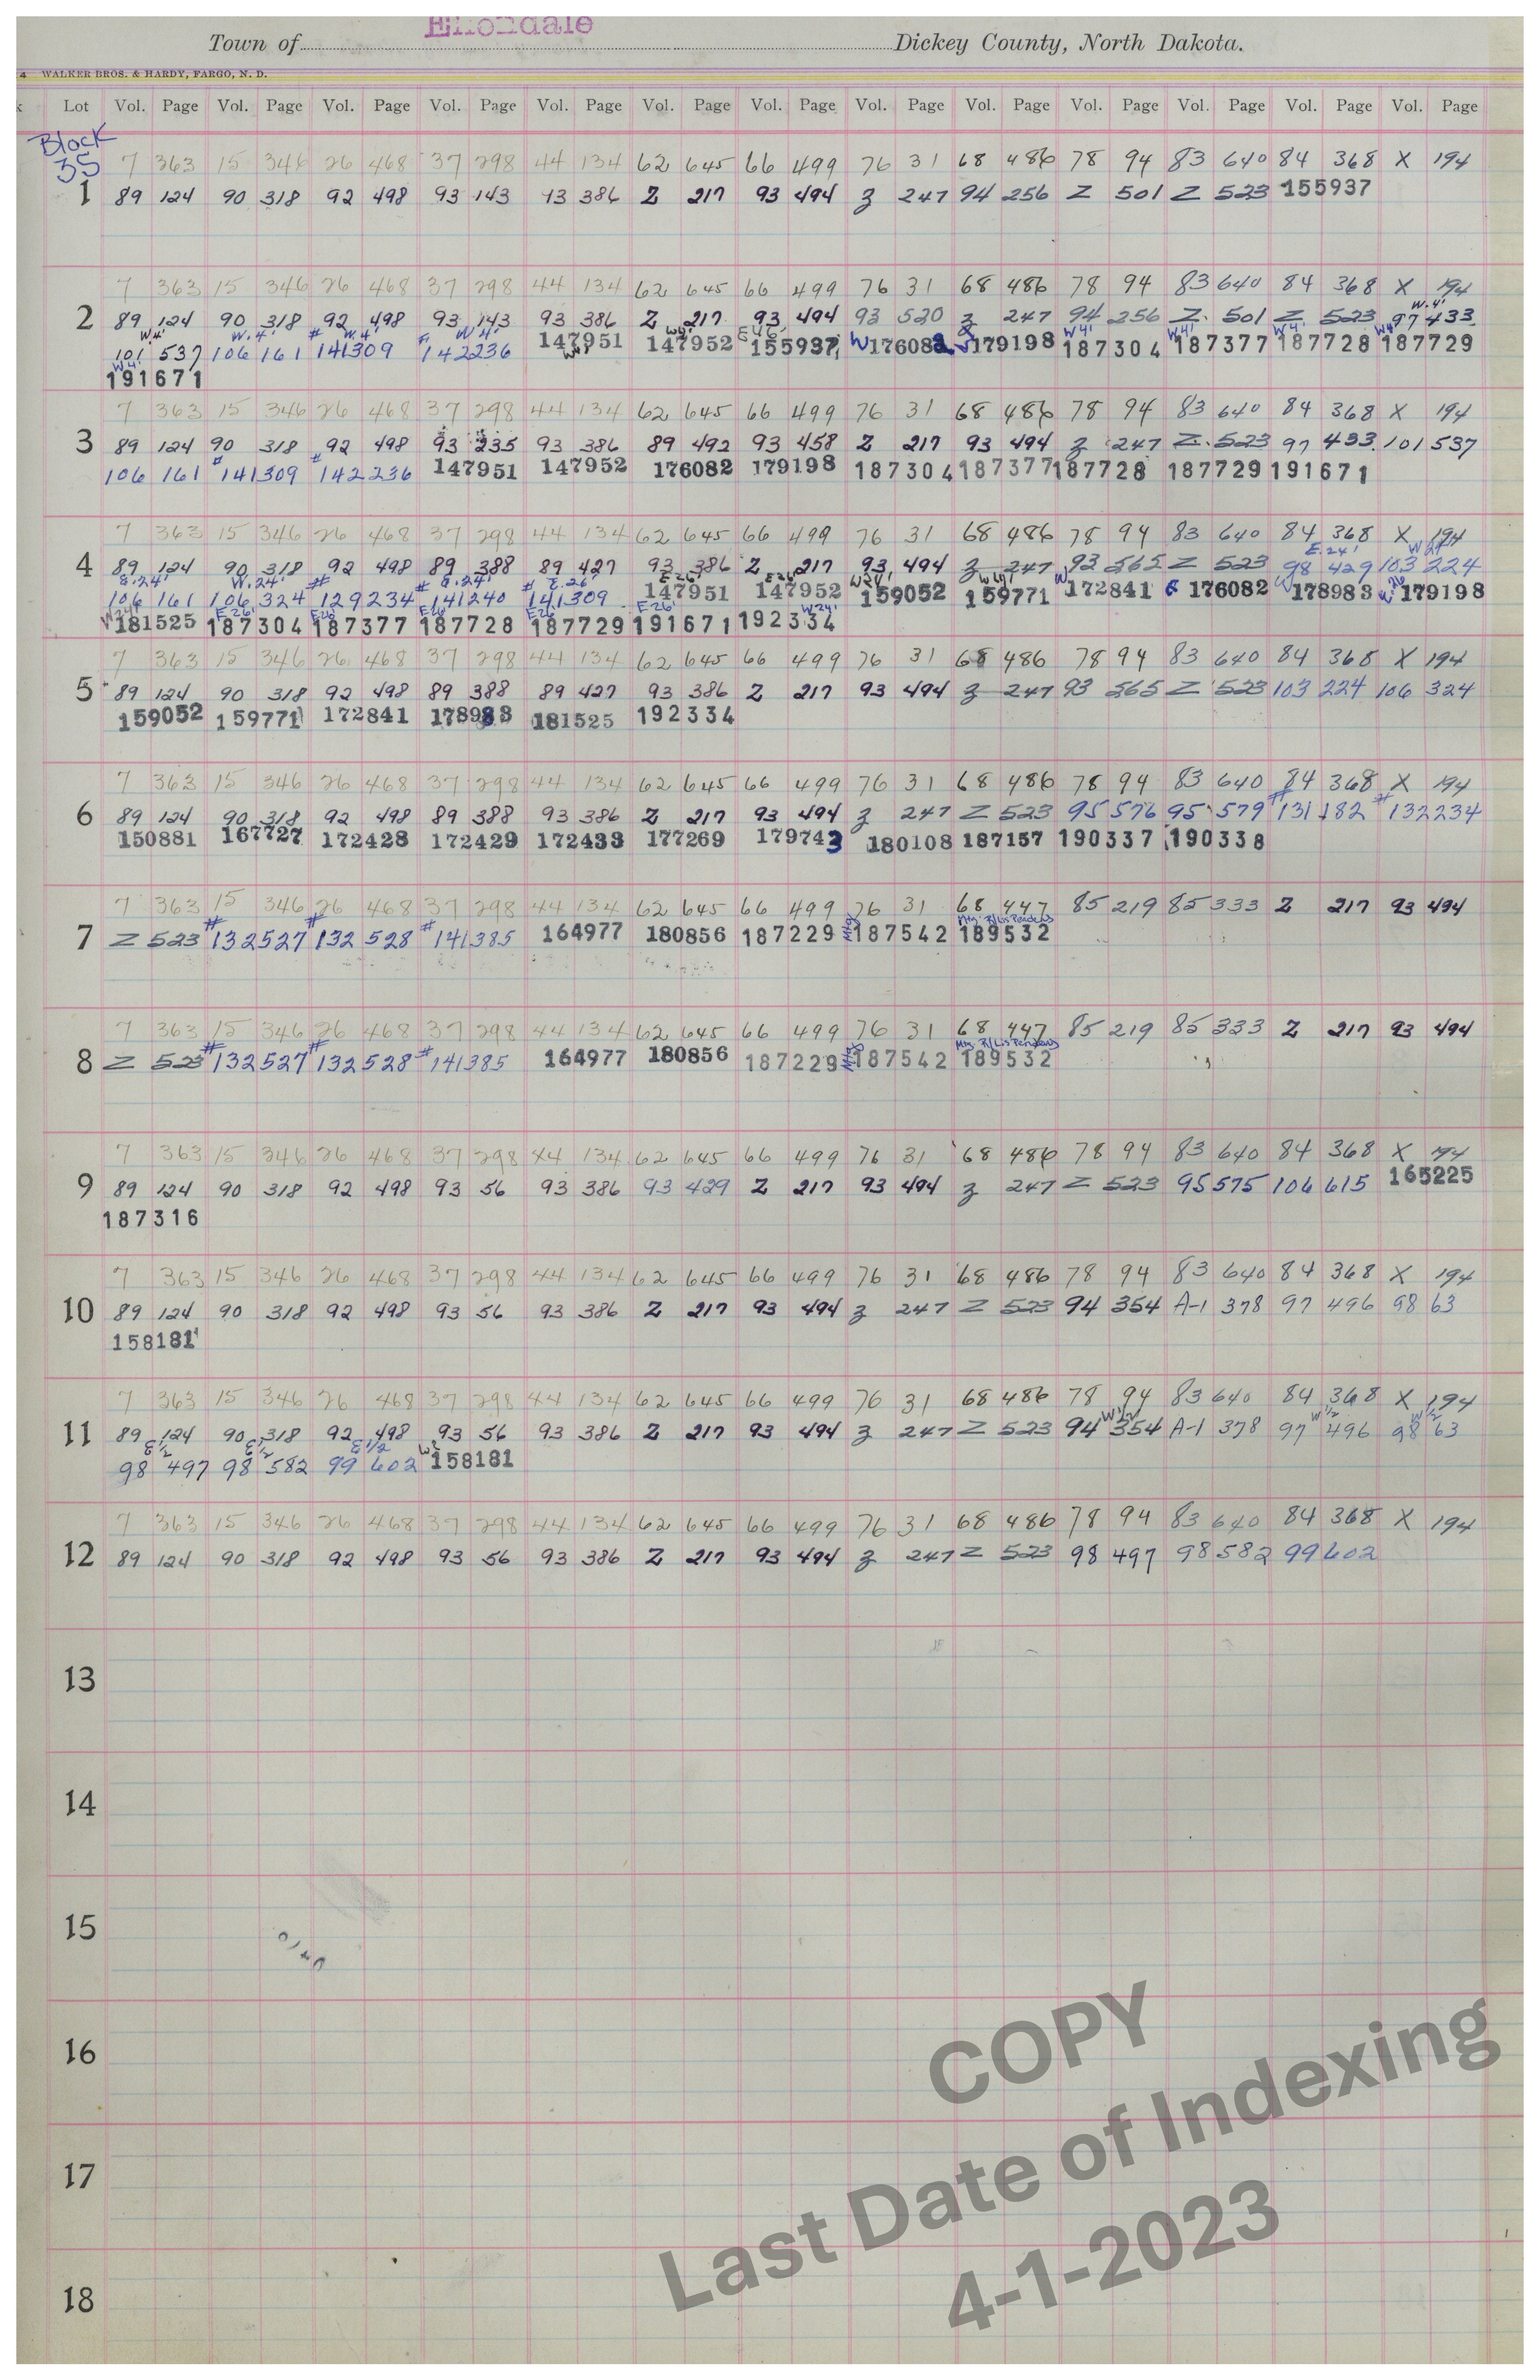 Ellendale
Town of Dickey County, North Dakota.
4 WALKER BROS. & HARDY, FARGO, N. D.
k Lot Vol. Page Vol. Page Vol. Page Vol. Page Vol. Page Vol. Page Vol. Page Vol. Page Vol. Page Vol. Page Vol. Page Vol. Page Vol. Page
Block
35
7 363 15 346 26 468 37 298 44 134 62 645 66 499 76 31 68 486 78 94 83 640 84 368 X 194
1 89 124 90 318 92 498 93 143 93 386 Z 217 93 494 Z 247 94 256 Z 501 Z 523 155937
7 363 15 346 26 468 37 298 44 134 62 645 66 499 76 31 68 486 78 94 83 640 84 368 X 194
W.4'
2 89 124 90 318 92 498 93 143 93 386 Z 217 93 494 93 520 Z 247 94 256 Z 501 Z 523 97 433
W.4' W.4' W.4' W4' W4' E46' W4' W4' W4' W4'
101 537 106 161 #141309 #142236 147951 147952 155937 W176082 179198 187304 187377 187728 187729
W4'
191671
7 363 15 346 26 468 37 298 44 134 62 645 66 499 76 31 68 486 78 94 83 640 84 368 X 194
3 89 124 90 318 92 498 93 235 93 386 89 492 93 458 Z 217 93 494 Z 247 Z 523 97 433 101 537
106 161 #141309 #142236 147951 147952 176082 179198 187304 187377 187728 187729 191671
7 363 15 346 26 468 37 298 44 134 62 645 66 499 76 31 68 486 78 94 83 640 84 368 X 194
E.24' W24'
4 89 124 90 318 92 498 89 388 89 427 93 386 Z 217 93 494 Z 247 93 565 Z 523 98 429 103 224
E.24' W.24' E.24' E.26' E26' E26' W24'
106 161 106 324 #129234 #141240 #141309 147951 147952 159052 159771 172841 176082 178983 179198
E26' E26' E26' E26' E26' W24'
181525 187304 187377 187728 187729 191671 192334
7 363 15 346 26 468 37 298 44 134 62 645 66 499 76 31 68 486 78 94 83 640 84 368 X 194
5 89 124 90 318 92 498 89 388 89 427 93 386 Z 217 93 494 Z 247 93 565 Z 523 103 224 106 324
159052 159771 172841 178983 181525 192334
7 363 15 346 26 468 37 298 44 134 62 645 66 499 76 31 68 486 78 94 83 640 84 368 X 194
6 89 124 90 318 92 498 89 388 93 386 Z 217 93 494 Z 247 Z 523 95 576 95 579 #131182 #132234
150881 167727 172428 172429 172433 177269 179743 180108 187157 190337 190338
7 363 15 346 26 468 37 298 44 134 62 645 66 499 76 31 68 447 85 219 85 333 Z 217 93 494
Mtg. R/Lis Pendens
7 Z 523 #132527 #132528 #141385 164977 180856 187229 Mtg 187542 189532
7 363 15 346 26 468 37 298 44 134 62 645 66 499 76 31 68 447 85 219 85 333 Z 217 93 494
Mtg. R/Lis Pendens
8 Z 523 #132527 #132528 #141385 164977 180856 187229 Mtg 187542 189532
7 363 15 346 26 468 37 298 44 134 62 645 66 499 76 31 68 486 78 94 83 640 84 368 X 194
9 89 124 90 318 92 498 93 56 93 386 93 429 Z 217 93 494 Z 247 Z 523 95 575 106 615 165225
187316
7 363 15 346 26 468 37 298 44 134 62 645 66 499 76 31 68 486 78 94 83 640 84 368 X 194
10 89 124 90 318 92 498 93 56 93 386 Z 217 93 494 Z 247 Z 523 94 354 A-1 378 97 496 98 63
158181
7 363 15 346 26 468 37 298 44 134 62 645 66 499 76 31 68 486 78 94 83 640 84 368 X 194
W1/2 W1/2 W1/2
11 89 124 90 318 92 498 93 56 93 386 Z 217 93 494 Z 247 Z 523 94 354 A-1 378 97 496 98 63
E1/2 E1/2 E1/2
98 497 98 582 99 602 158181
7 363 15 346 26 468 37 298 44 134 62 645 66 499 76 31 68 486 78 94 83 640 84 368 X 194
12 89 124 90 318 92 498 93 56 93 386 Z 217 93 494 Z 247 Z 523 98 497 98 582 99 602
13
14
15
16
17
18
COPY
Last Date of Indexing
4-1-2023